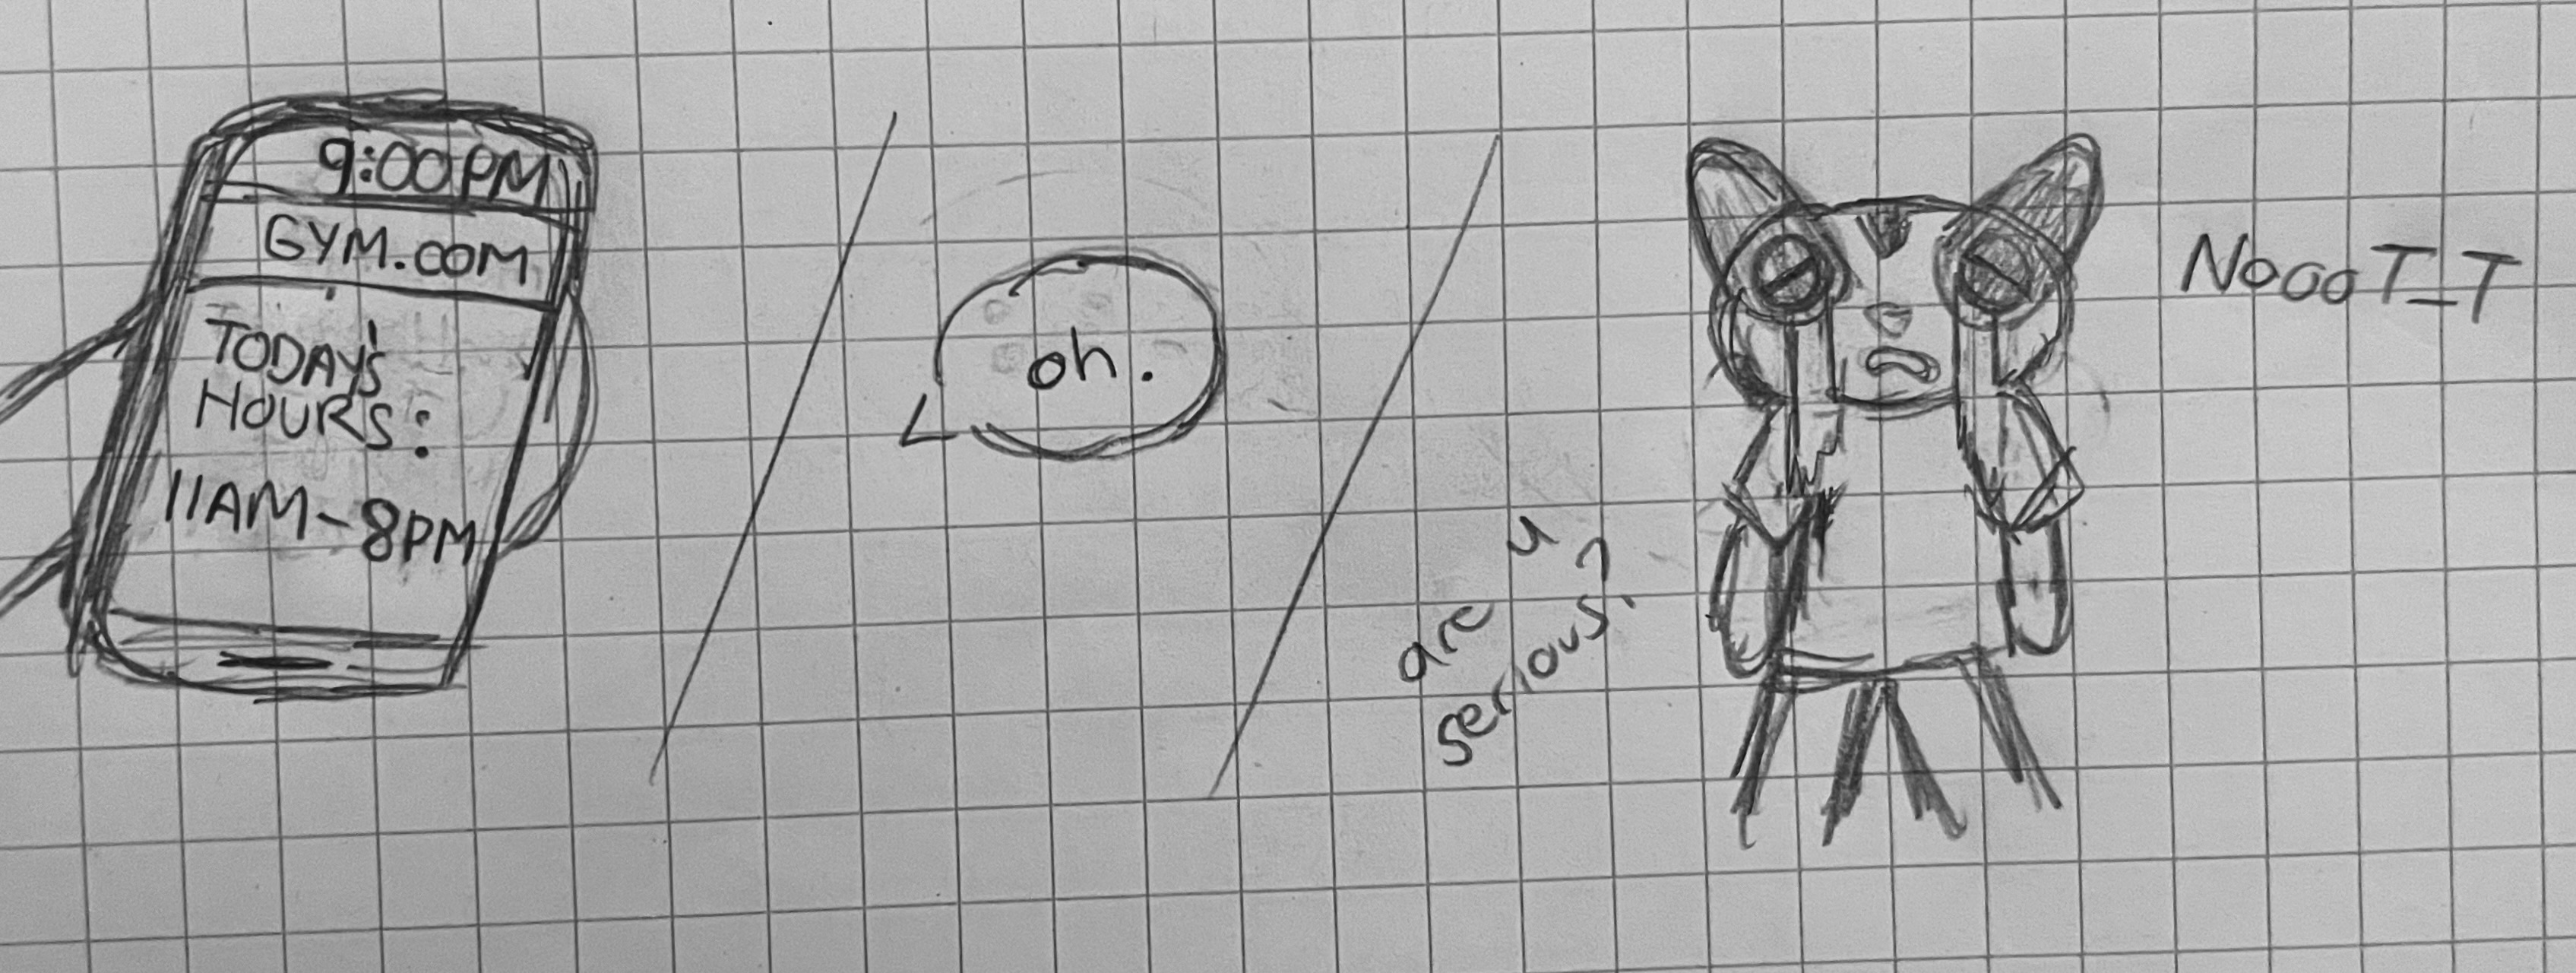 9:00PM
GYM.COM
TODAY'S
HOURS:
11AM-8PM
oh.
are u
serious?
NoooT_T